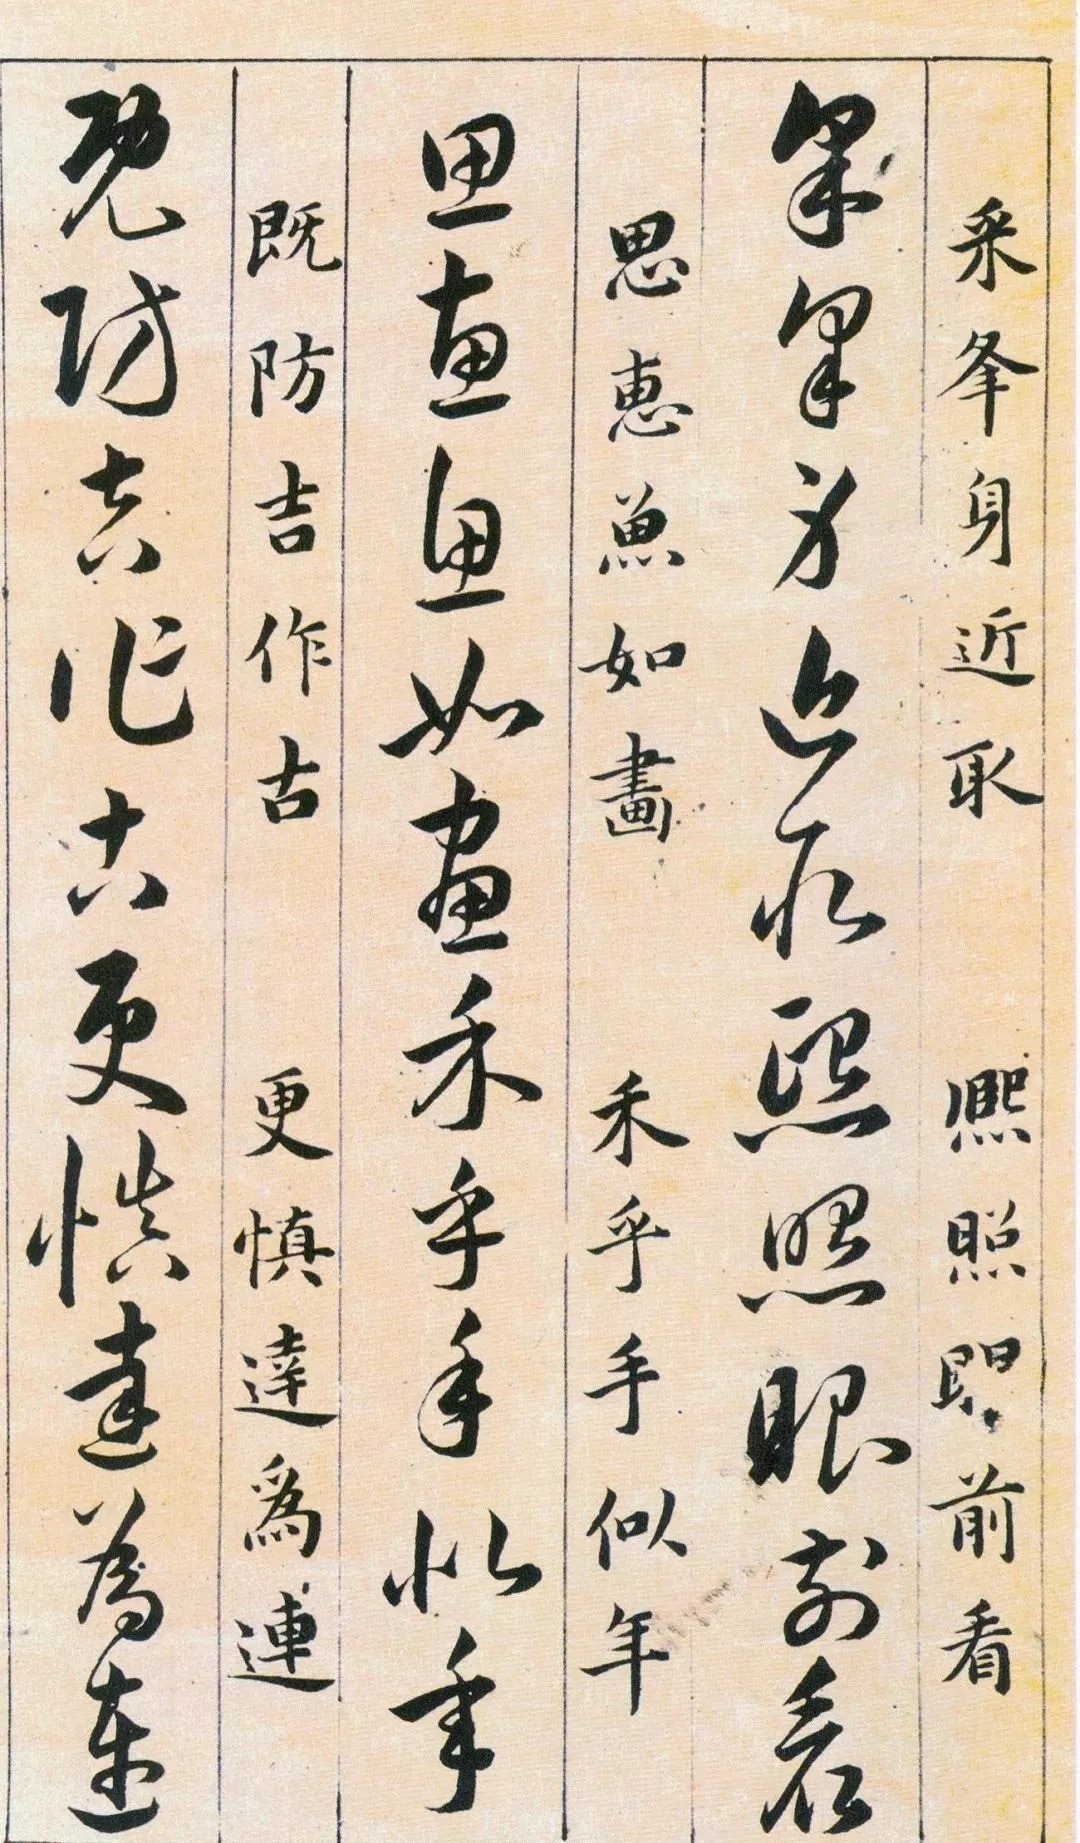 采夆身近取 熙照眼前看
采夆身近取熙照眼前看
思恵魚如畫 禾乎手似年
思恵魚如畫禾乎手似年
既防吉作古 更慎達爲連
既防吉作古更慎達為連